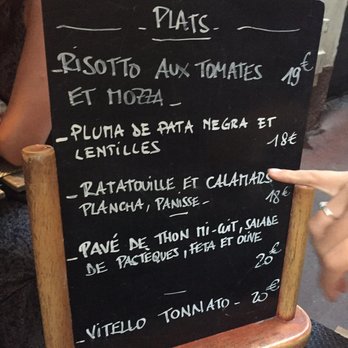 - PLATS -
- RISOTTO AUX TOMATES 19€
ET MOZZA -
- PLUMA DE PATA NEGRA ET
LENTILLES 18€
- RATATOUILLE ET CALAMARS
PLANCHA, PANISSE - 18€
- PAVÉ DE THON MI-CUIT, SALADE
DE PASTÈQUES, FETA ET OLIVE
20€
- VITELLO TONNATO - 20€